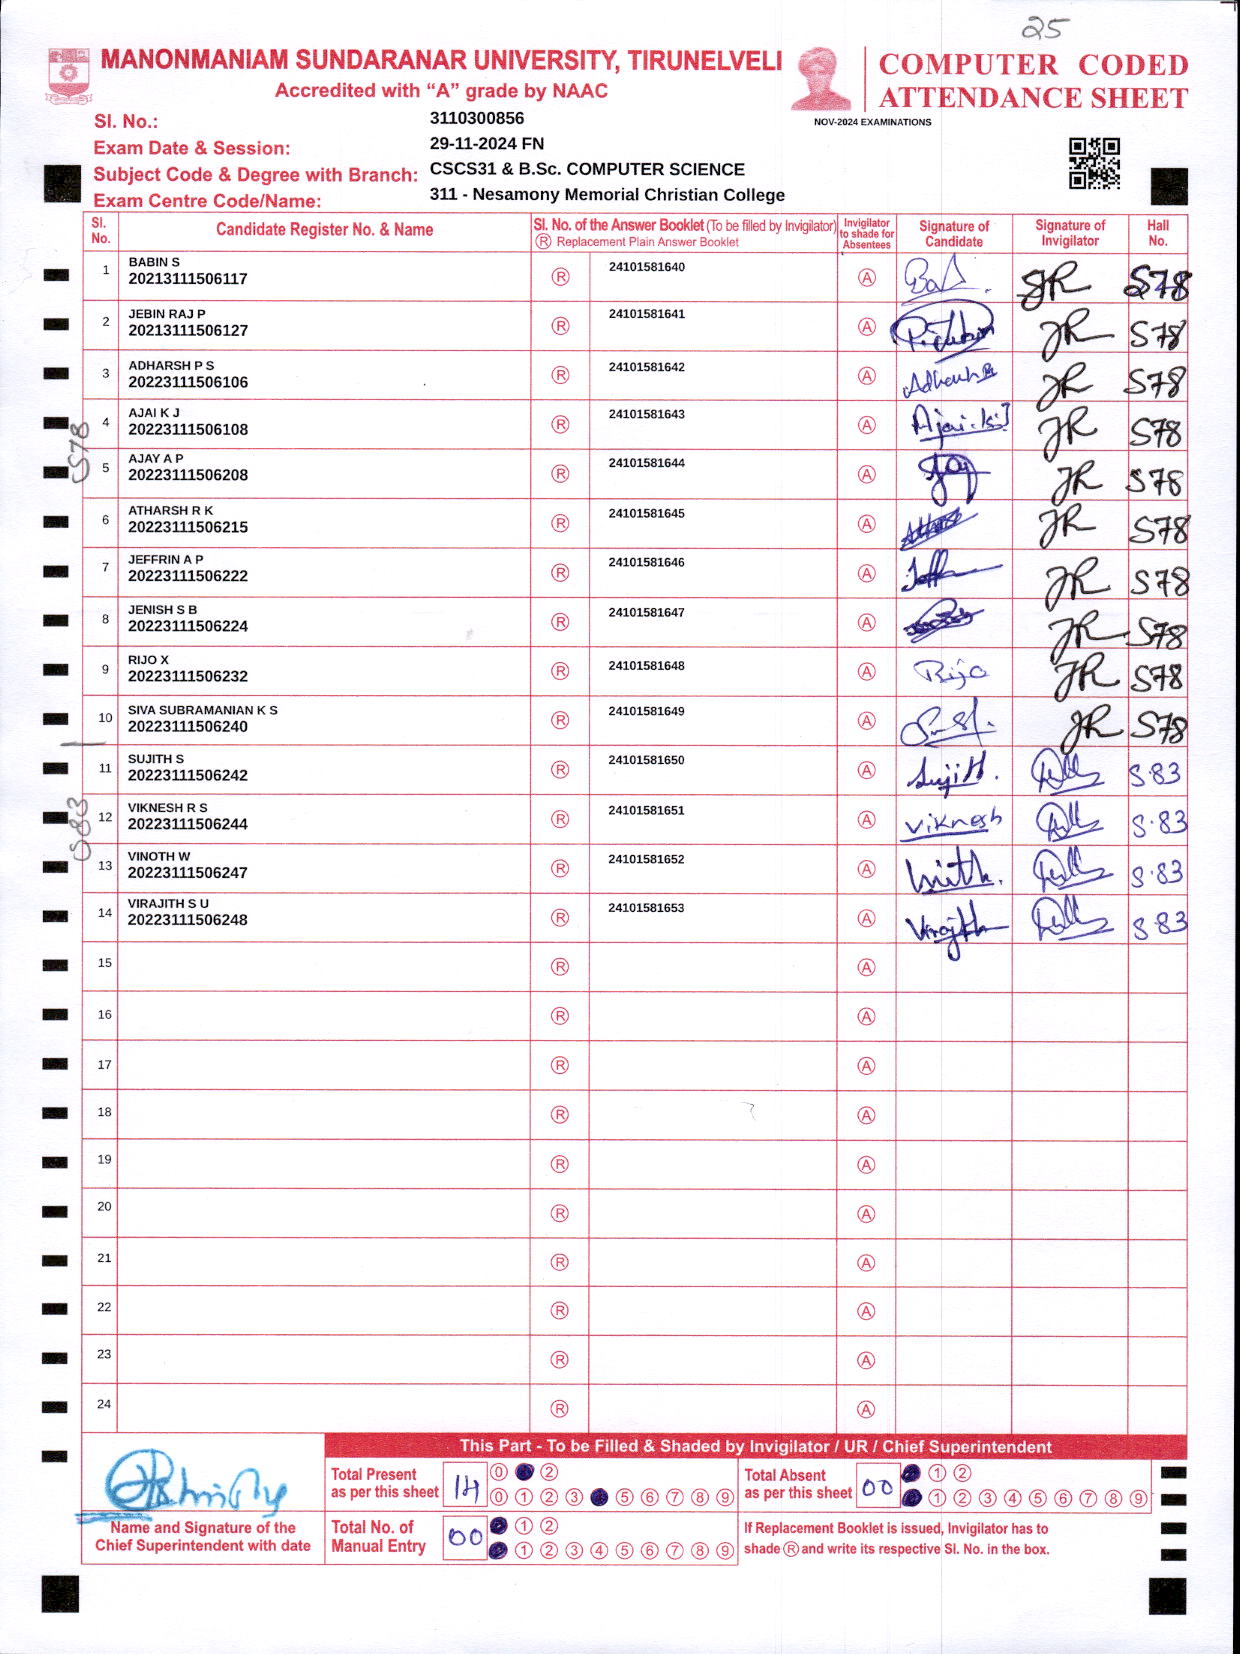 25
MANONMANIAM SUNDARANAR UNIVERSITY, TIRUNELVELI
Accredited with “A” grade by NAAC
COMPUTER CODED
ATTENDANCE SHEET
NOV-2024 EXAMINATIONS
Sl. No.: 3110300856
Exam Date & Session: 29-11-2024 FN
Subject Code & Degree with Branch: CSCS31 & B.Sc. COMPUTER SCIENCE
Exam Centre Code/Name: 311 - Nesamony Memorial Christian College
Sl. No. Candidate Register No. & Name Sl. No. of the Answer Booklet (To be filled by Invigilator) Ⓡ Replacement Plain Answer Booklet Invigilator to shade for Absentees Signature of Candidate Signature of Invigilator Hall No.
1 BABIN S
20213111506117 Ⓡ 24101581640 Ⓐ JR S78
2 JEBIN RAJ P
20213111506127 Ⓡ 24101581641 Ⓐ P.Jebin JR S78
3 ADHARSH P S
20223111506106 Ⓡ 24101581642 Ⓐ JR S78
4 AJAI K J
20223111506108 Ⓡ 24101581643 Ⓐ Ajai.K.J JR S78
S78
5 AJAY A P
20223111506208 Ⓡ 24101581644 Ⓐ JR S78
6 ATHARSH R K
20223111506215 Ⓡ 24101581645 Ⓐ JR S78
7 JEFFRIN A P
20223111506222 Ⓡ 24101581646 Ⓐ JR S78
8 JENISH S B
20223111506224 Ⓡ 24101581647 Ⓐ JR S78
9 RIJO X
20223111506232 Ⓡ 24101581648 Ⓐ Rijo JR S78
10 SIVA SUBRAMANIAN K S
20223111506240 Ⓡ 24101581649 Ⓐ JR S78
11 SUJITH S
20223111506242 Ⓡ 24101581650 Ⓐ Sujith. S.83
12 VIKNESH R S
20223111506244 Ⓡ 24101581651 Ⓐ Viknesh S.83
S83
13 VINOTH W
20223111506247 Ⓡ 24101581652 Ⓐ S.83
14 VIRAJITH S U
20223111506248 Ⓡ 24101581653 Ⓐ Virajith S 83
15 Ⓡ Ⓐ
16 Ⓡ Ⓐ
17 Ⓡ Ⓐ
18 Ⓡ Ⓐ
19 Ⓡ Ⓐ
20 Ⓡ Ⓐ
21 Ⓡ Ⓐ
22 Ⓡ Ⓐ
23 Ⓡ Ⓐ
24 Ⓡ Ⓐ
This Part - To be Filled & Shaded by Invigilator / UR / Chief Superintendent
Name and Signature of the
Chief Superintendent with date
Total Present
as per this sheet 14
0 2
0 1 2 3 5 6 7 8 9
Total Absent
as per this sheet 00
1 2
1 2 3 4 5 6 7 8 9
Total No. of
Manual Entry 00
1 2
1 2 3 4 5 6 7 8 9
If Replacement Booklet is issued, Invigilator has to
shade Ⓡ and write its respective Sl. No. in the box.